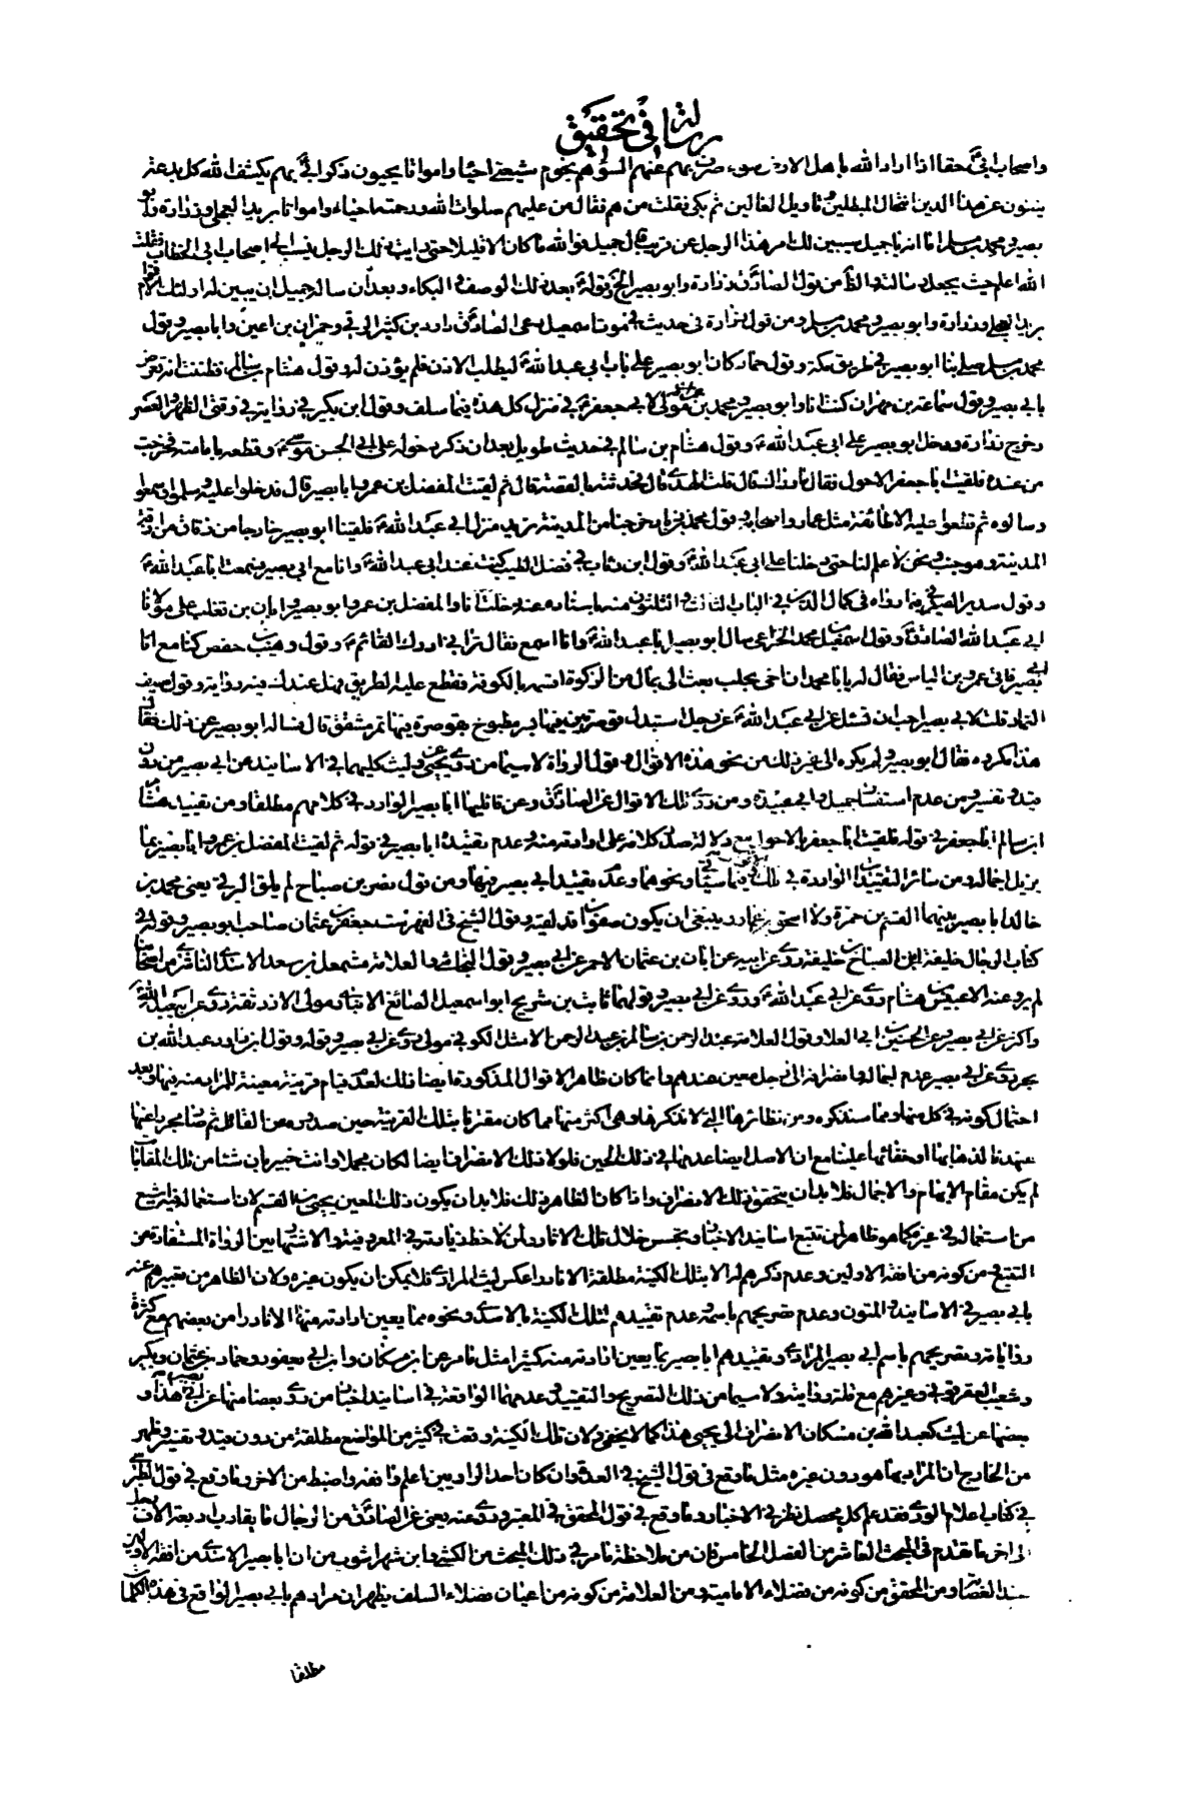 رسالة في تحقيق
واصحاب ابي حقا اذا اراد الله باهل الارض سوء صرف بهم عنهم السوء هم نجوم شيعتي احياء وامواتا يحيون ذكر ابي بهم يكشف الله كل بدعة
ينفون عن هذا الدين انتحال المبطلين وتاويل الغالين ثم بكى فقلت من هم فقال من عليهم صلوات الله ورحمته احياء وامواتا بريد العجلي وزرارة وابو
بصير ومحمد بن مسلم اما انه يا جميل سيبين لك امر هذا الرجل عن قريب قال جميل فوالله ما كان الا قليلا حتى رايت ذلك الرجل ينسب الى اصحاب ابي الخطاب فقلت
الله اعلم حيث يجعل رسالته من قول الصادق زرارة وابو بصير وقوله بعد ذلك الوصف والبكاء وبعد ان ساله جميل ان يبين له اولئك
بريد العجلي وزرارة وابو بصير ومحمد بن مسلم ومن قول زرارة في حديث في موت اسمعيل دعى الصادق داود بن كثير الرقي وحمران بن اعين وابا بصير وقول
محمد بن مسلم صلى بنا ابو بصير في طريق مكة وقول حماد كان ابو بصير على باب ابي عبد الله ليطلب الاذن فلم يؤذن له وقول هشام بن سالم فظننت انه تعرض
بابي بصير وقول سماعة بن مهران كنت انا وابو بصير ومحمد بن عمران مولى لابي جعفر في منزل كل هذه فيما سلف وقول ابن بكير في روايته في وقتي الظهر والعصر
وخرج زرارة ودخل ابو بصير على ابي عبد الله وقول هشام بن سالم في حديث طويل بعد ان ذكر دخوله على ابي الحسن موسى وقطعه بامامته فخرجت
من عنده فلقيت ابا جعفر الاحول فقال ما وراك قال قلت الهدى قال فحدثته بالقصة قال ثم لقيت المفضل بن عمر وابا بصير قال فدخلوا عليه وسلموا وسمعوا
وسالوه ثم قطعوا عليه الا طائفة مثل عمار واصحابه وقول محمد خرجنا من المدينة نريد منزل ابي عبد الله فلقينا ابو بصير خارجا من زقاق من ازقة
المدينة وهو جنب ونحن لا علم لنا حتى دخلنا على ابي عبد الله وقول ابن رئاب في فضل الطيب كنت عند ابي عبد الله وانا مع ابي بصير فسمعت ابا عبد الله
وقول سدير الصيرفي فيما رواه في كمال الدين في الباب الثالث والثلثون منه باسناده عنه دخلت انا والمفضل بن عمر وابو بصير وابان بن تغلب على مولانا
ابي عبد الله الصادق وقول اسمعيل بن محمد الخزاعي سال ابو بصير ابا عبد الله وانا اسمع فقال تراني ادرك القائم وقول وهيب بن حفص كنا مع ابا
بصير فاتى عمرو بن الياس فقال له يا ابا محمد ان اخي بحلب بعث الي بمال من الزكوة اقسمه بالكوفة فقطع عليه الطريق فهل عندك فيه رواية وقول سيف
التمار قلت لابي بصير احب ان تسئل عن ابي عبد الله عن رجل استبدل قوصرتين فيهما بسر مطبوخ بقوصرة فيها تمر مشقق قال فساله ابو بصير عن ذلك فقال
هذا مكروه فقال ابو بصير ولم يكره الى غير ذلك من نحو هذه الاقوال وقول الرواة لا سيما من روى عن يحيى وليث كليهما في الاسانيد عن ابي بصير من دون
قيد وتفسير ومن عدم استفسار جميل وابي عبيدة ومن روى تلك الاقوال عن الصادق وعن قائليها ابا بصير الوارد في كلامهم مطلقا ومن تقييد هشام
ابن سالم ابا جعفر في قوله فلقيت ابا جعفر بالاحول مع دلالة صدر كلامه على ارادته منه وعدم تقييده ابا بصير في قوله ثم لقيت المفضل بن عمر وابا بصير بما
يزيل اجماله ومن سائر التقييدات الواردة في تلك وفيما سياتي ونحوهما وعدم تقييد ابي بصير فيها ومن قول نصر بن صباح لم يلق البرقي يعني محمد بن
خالد ابا بصير بينهما القسم بن حمزة ولا اسحق بن عمار وينبغي ان يكون صفوان قد لقيه وقول الشيخ في الفهرست جعفر بن عثمان صاحب ابو بصير وقوله في
كتاب الرجال خليفة ابن الصباح خليفة روى عن ابيه عن ابان بن عثمان الاحمر عن ابي بصير وقول النجاشي والعلامة مشمعل بن سعد الاسدي الناشري من اصحابنا
لم يرو عنه الا عبيس بن هشام روى عن ابي عبد الله وروى عن ابي بصير وقولهما ثابت بن شريح ابو اسمعيل الصائغ الانباري مولى الازد ثقة روى عن ابي عبد الله
واكثر عن ابي بصير وعن الحسين بن ابي العلا وقول العلامة عبد الرحمن بن سالم بن عبد الرحمن الاشل الكوفي مولى روى عن ابي بصير وقوله وقول ابن داود عبد الله بن
بحر روى عن ابي بصير عدم اجماله وانصرافه الى رجل معين عندهم وانما كان ظاهر الاقوال المذكورة ايضا ذلك لعدم قيام قرينة معينة للمراد منه فيها وبعد
احتمال كونه في كل منها ومما سنذكره ومن نظائرها التي لا نذكرها وهي اكثر منها مما كان مقترنا بتلك القرينة حين صدوره عن القائل ثم صار مجردا عنها
بعده لذهابها او خفائها علينا مع ان الاصل ايضا عدمها في ذلك الحين فلولا ذلك الانصراف ايضا لكان مجملا وانت خبير بان شيئا من تلك المقامات
لم يكن مقام الابهام والاجمال فلا بد ان يتحقق ذلك الانصراف واذا كان الظاهر ذلك فلا بد ان يكون ذلك المعين يحيى بن القسم لان استعماله فيه اشيع
من استعماله في غيره كما هو ظاهر لمن تتبع اسانيد الاخبار وتجسس خلال تلك الاثار ولمن لاحظ زيادته في المعروفية والاشتهار بين الرواة المستفادة من
التتبع من كونه من افقه الاولين وعدم ذكرهم له الا بتلك الكنية مطلقة الا نادرا عكس ليث المرادي فلا يمكن ان يكون غيره ولان الظاهر من تعبيرهم عنه
بابي بصير في الاسانيد والمتون وعدم تصريحهم باسمه وعدم تقييدهم لتلك الكنية بالاسدي ونحوه مما يعين ارادته منها الا نادرا من بعضهم مع كثرة
رواياته وتصريحهم باسم ابي بصير المرادي وتقييدهم ابا بصير بما يعين ارادته منه كثيرا مثل ما مر عن ابن مسكان وابن ابي يعفور وحماد بن عثمان وبكير
وشعيب العقرقوفي وغيرهم مع قلة رواياته ولا سيما من ذلك التصريح والتقييد وعدمهما الواقعة في اسانيد اخبار من روى بعضا منها عن ابي بصير هذا و
بعضها عن ليث كعبد الله بن مسكان الانصراف الى يحيى هذا كما لا يخفى ولان تلك الكنية وقعت في كثير من المواضع مطلقة من دون قيد وتفسير وظهر
من الخارج ان المراد بها هو دون غيره مثل ما وقع في قول الشيخ في العدة وان كان احد الراويين اعلم وافقه واضبط من الاخر وما وقع في قول الطبرسي
في كتاب اعلام الورى فقد علم كل محصل نظر في الاخبار وما وقع في قول المحقق في المعتبر وروى عنه يعني عن الصادق من الرجال ما يقارب اربعة الاف رجل
الى اخر ما تقدم في المبحث العاشر من الفصل الخامس فان من ملاحظة ما مر في ذلك المبحث من الكشي وابن شهراشوب من ان ابا بصير الاسدي من افقه الاولين
عند العصابة ومن المحقق من كونه من فضلاء الامامية ومن العلامة من كونه من اعيان فضلاء السلف يظهر ان مرادهم بابي بصير الواقع في هذه الكلمات
مطلقا